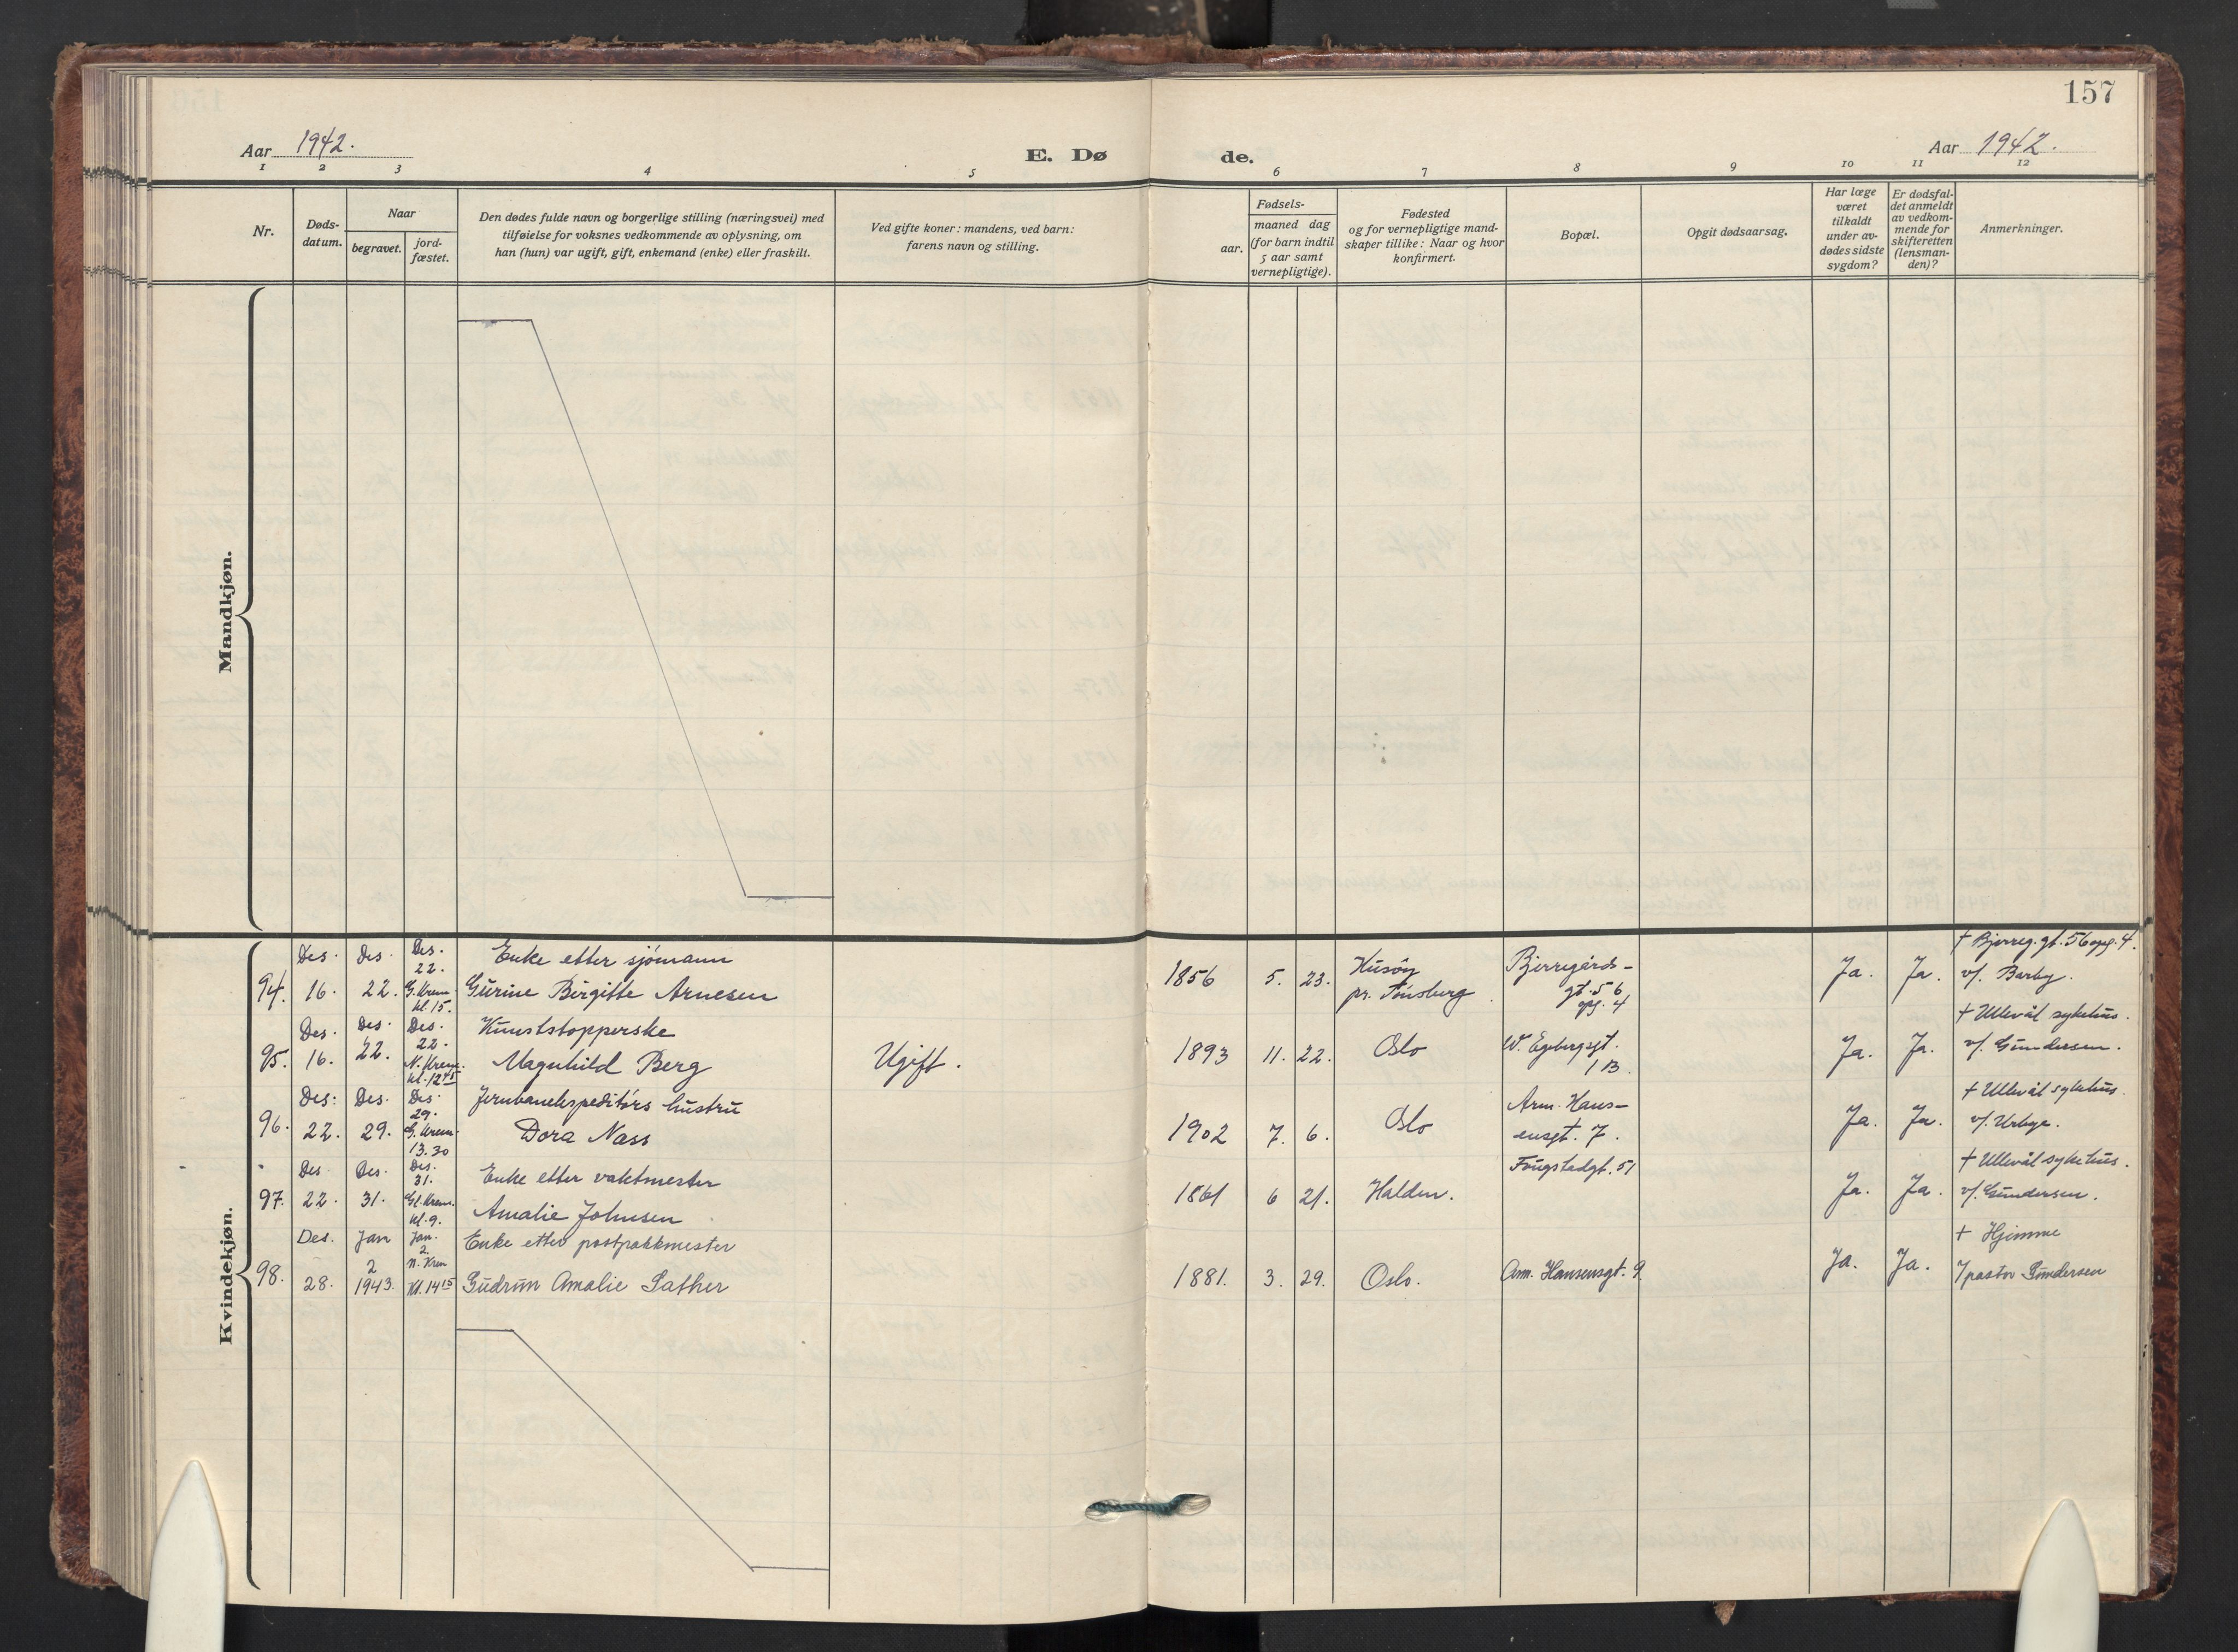 157
Aar 1942.
E. Dø
de.
Aar 1942.
1 2 3 4 5 6 7 8 9 10 11 12
Nr.
Døds-
datum.
Naar
begravet.
jord-
fæstet.
Den dødes fulde navn og borgerlige stilling (næringsvei) med
tilføielse for voksnes vedkommende av oplysning, om
han (hun) var ugift, gift, enkemand (enke) eller fraskilt.
Ved gifte koner: mandens, ved barn:
farens navn og stilling.
Fødsels-
aar.
maaned dag
(for barn indtil
5 aar samt
vernepligtige).
Fødested
og for vernepligtige mand-
skaper tillike: Naar og hvor
konfirmert.
Bopæl.
Opgit dødsaarsag.
Har læge
været
tilkaldt
under av-
dødes sidste
sygdom?
Er dødsfal-
det anmeldt
av vedkom-
mende for
skifteretten
(lensman-
den)?
Anmerkninger.
Mandkjøn.
Kvindekjøn.
94.
Des.
16.
Des.
22.
Des.
22.
G. Krem.
kl. 15.
Enke etter sjömann
Gurine Birgitte Arnesen
1856
5.
23.
Husöy
pr. Tönsberg
Bjerregårds-
gt. 56
opg. 4
Ja.
Ja.
† Bjerreg. gt. 56 opg. 4.
v/. Barby.
95.
Des.
16.
Des.
22.
Des.
22.
N. Krem.
kl. 12 45
Kunststopperske
Magnhild Berg
Ugift.
1893
11.
22.
Oslo
W. Egebergsgt.
1 B.
Ja.
Ja.
† Ullevål sykehus.
v/. Gundersen.
96.
Des.
22.
Des.
29.
Des.
29.
G. Krem.
13.30
Jernbaneekspeditörs hustru
Dora Nass
1902
7.
6.
Oslo
Arm. Hans-
ensgt. 7.
Ja.
Ja.
† Ullevål sykehus.
v/. Urbye.
97.
Des.
22.
Des.
31.
Des.
31.
Gl. Krem.
kl. 9.
Enke etter vaktmester
Amalie Johnsen
1861
6
21.
Halden.
Fougstadgt. 51
Ja.
Ja.
† Ullevål sykehus.
v/. Gundersen.
98.
Des.
28.
Jan
2
1943.
Jan.
2.
N. Krem
Kl. 14 15
Enke etter postpakkmester
Gudrun Amalie Sather
1881.
3.
29.
Oslo.
Arm. Hansensgt. 9
Ja.
Ja.
† Hjemme
v/ pastor Gundersen